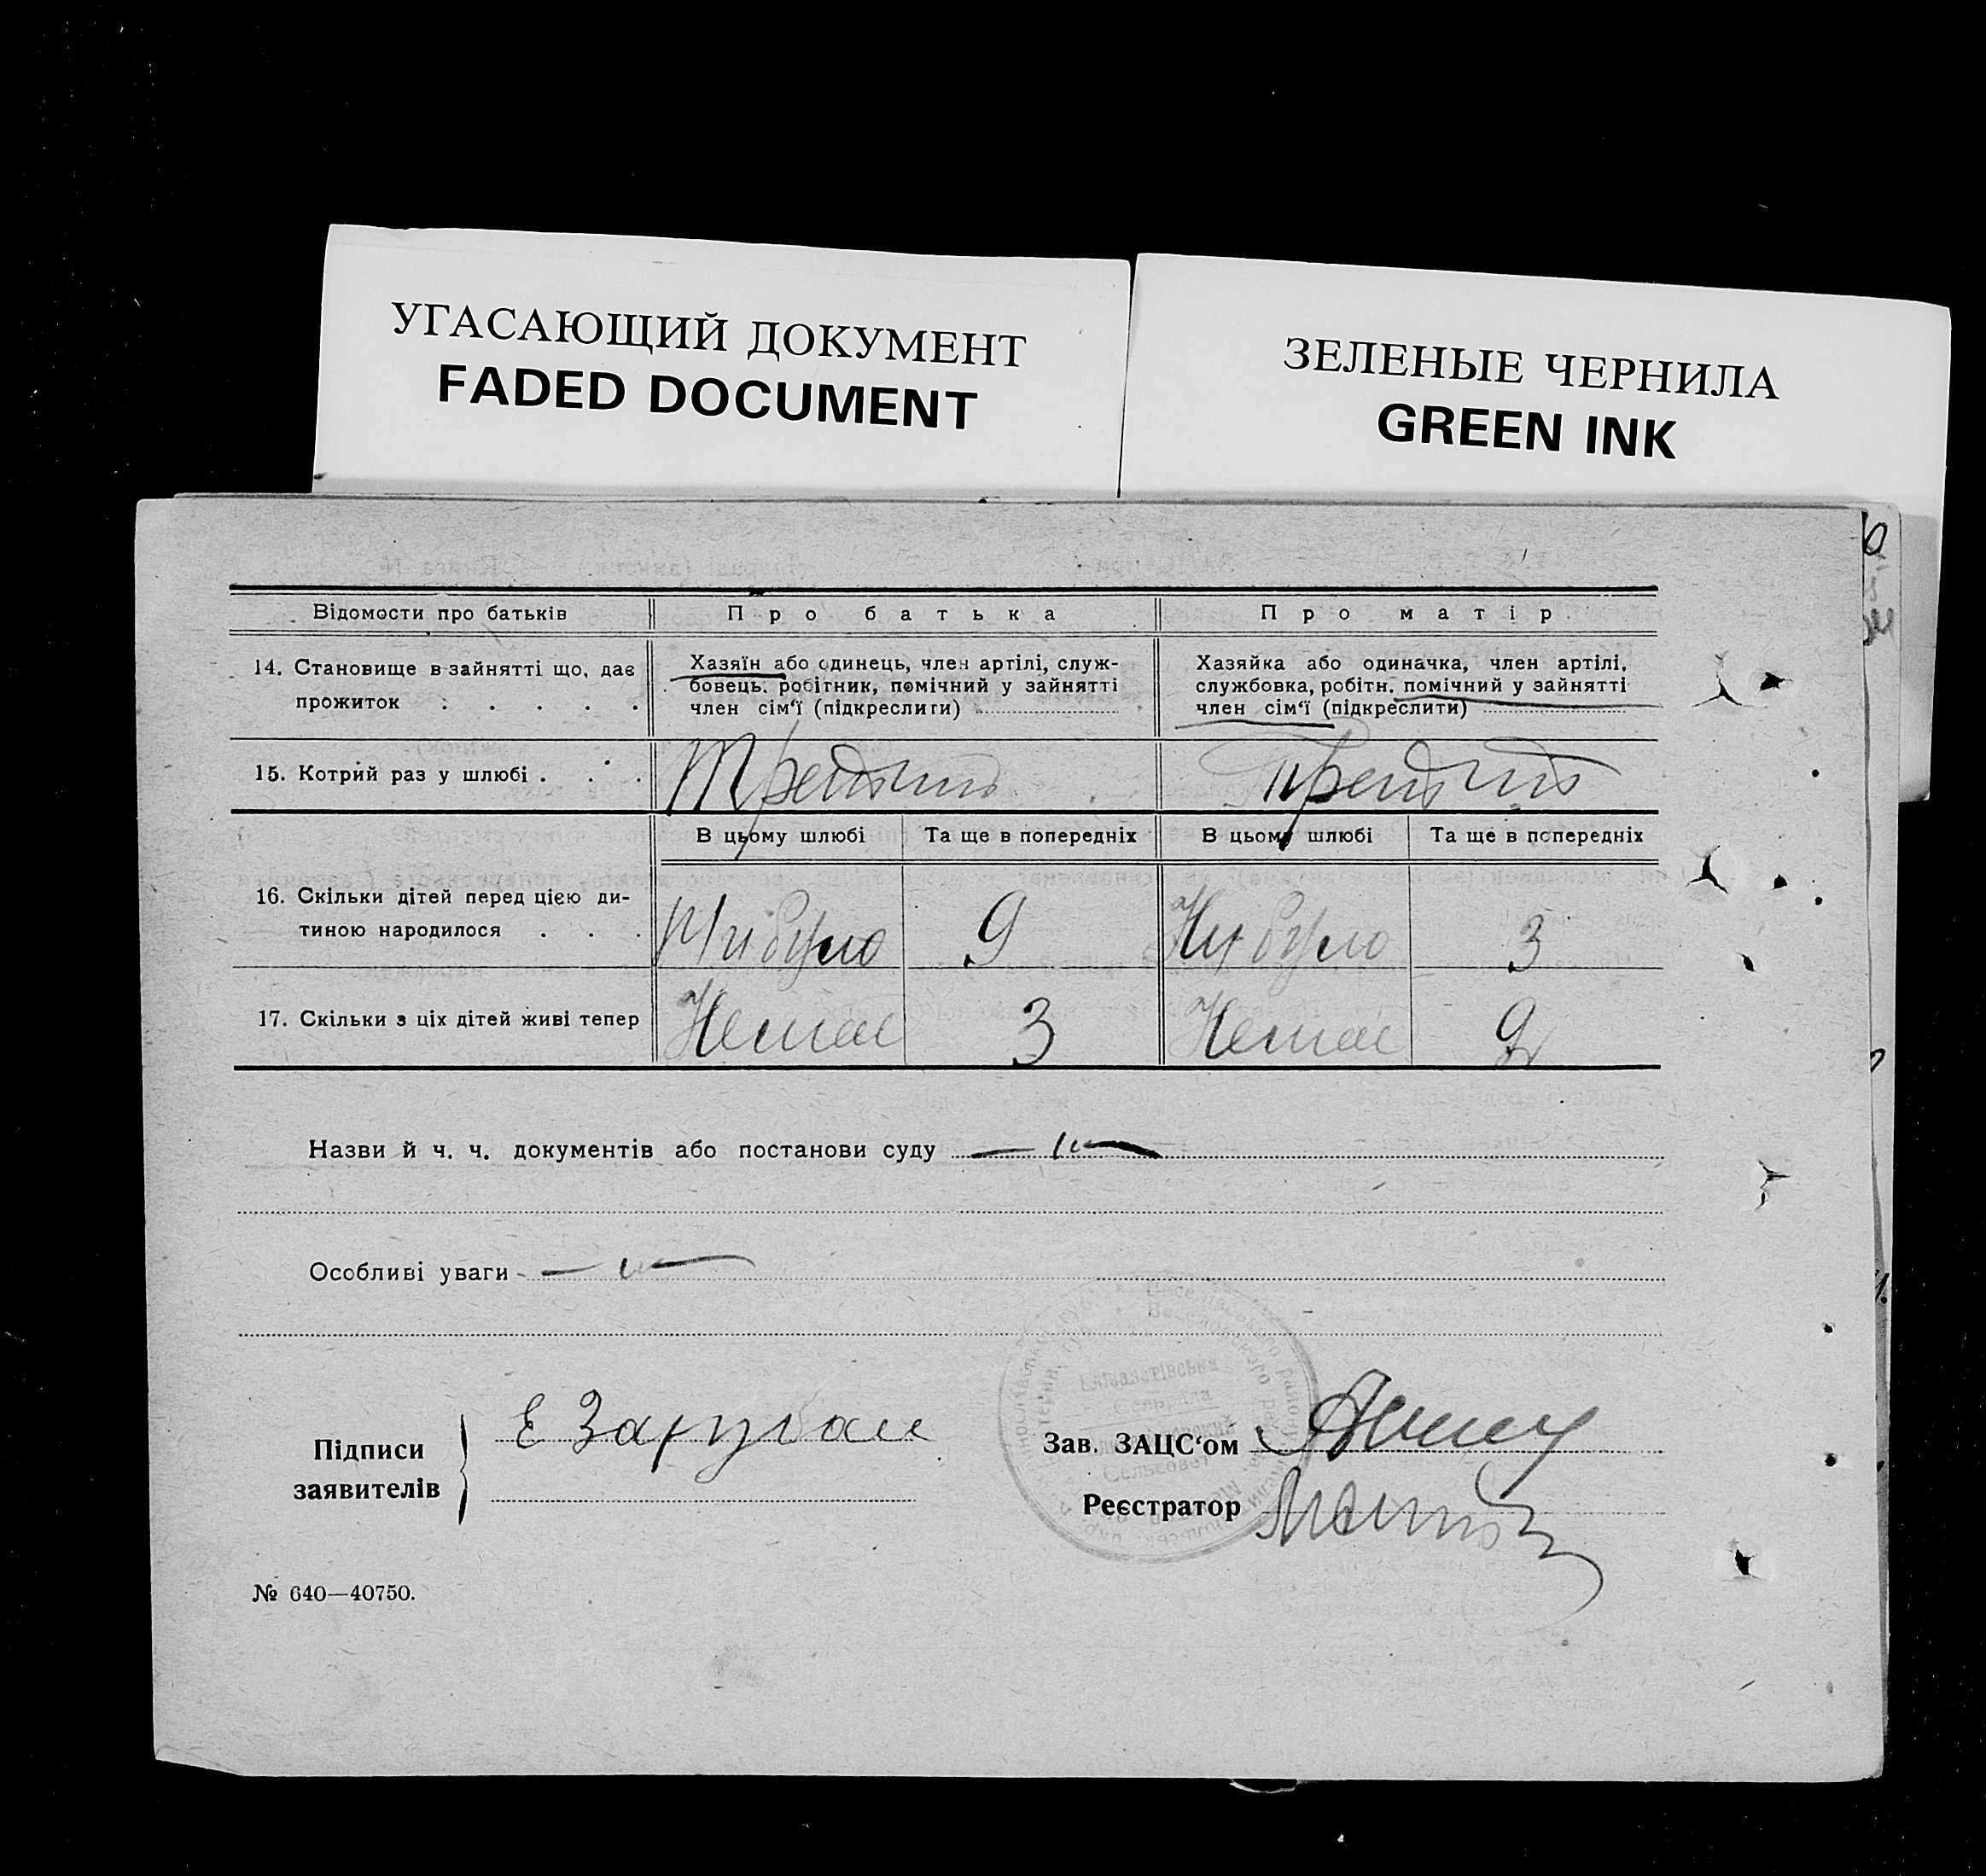 УГАСАЮЩИЙ ДОКУМЕНТ
FADED DOCUMENT
ЗЕЛЕНЫЕ ЧЕРНИЛА
GREEN INK
Відомости про батьків
Про батька
Про матір
14. Становище в зайнятті що, дає
прожиток . . . . .
Хазяїн або одинець, член артілі, служ-
бовець, робітник, помічний у зайнятті
член сім'ї (підкреслити)
Хазяйка або одиначка, член артілі,
службовка, робітн. помічний у зайнятті
член сім'ї (підкреслити)
15. Котрий раз у шлюбі . . .
В цьому шлюбі
Та ще в попередніх
В цьому шлюбі
Та ще в попередніх
16. Скільки дітей перед цією ди-
тиною народилося . . .
Нибуло
9
Нибуло
3
17. Скільки з ціх дітей живі тепер
Немає
3
Немає
2
Назви й ч. ч. документів або постанови суду
Особливі уваги
Підписи
заявителів
Е Зарубан
Зав. ЗАЦС'ом
Реєстратор
№ 640—40750.